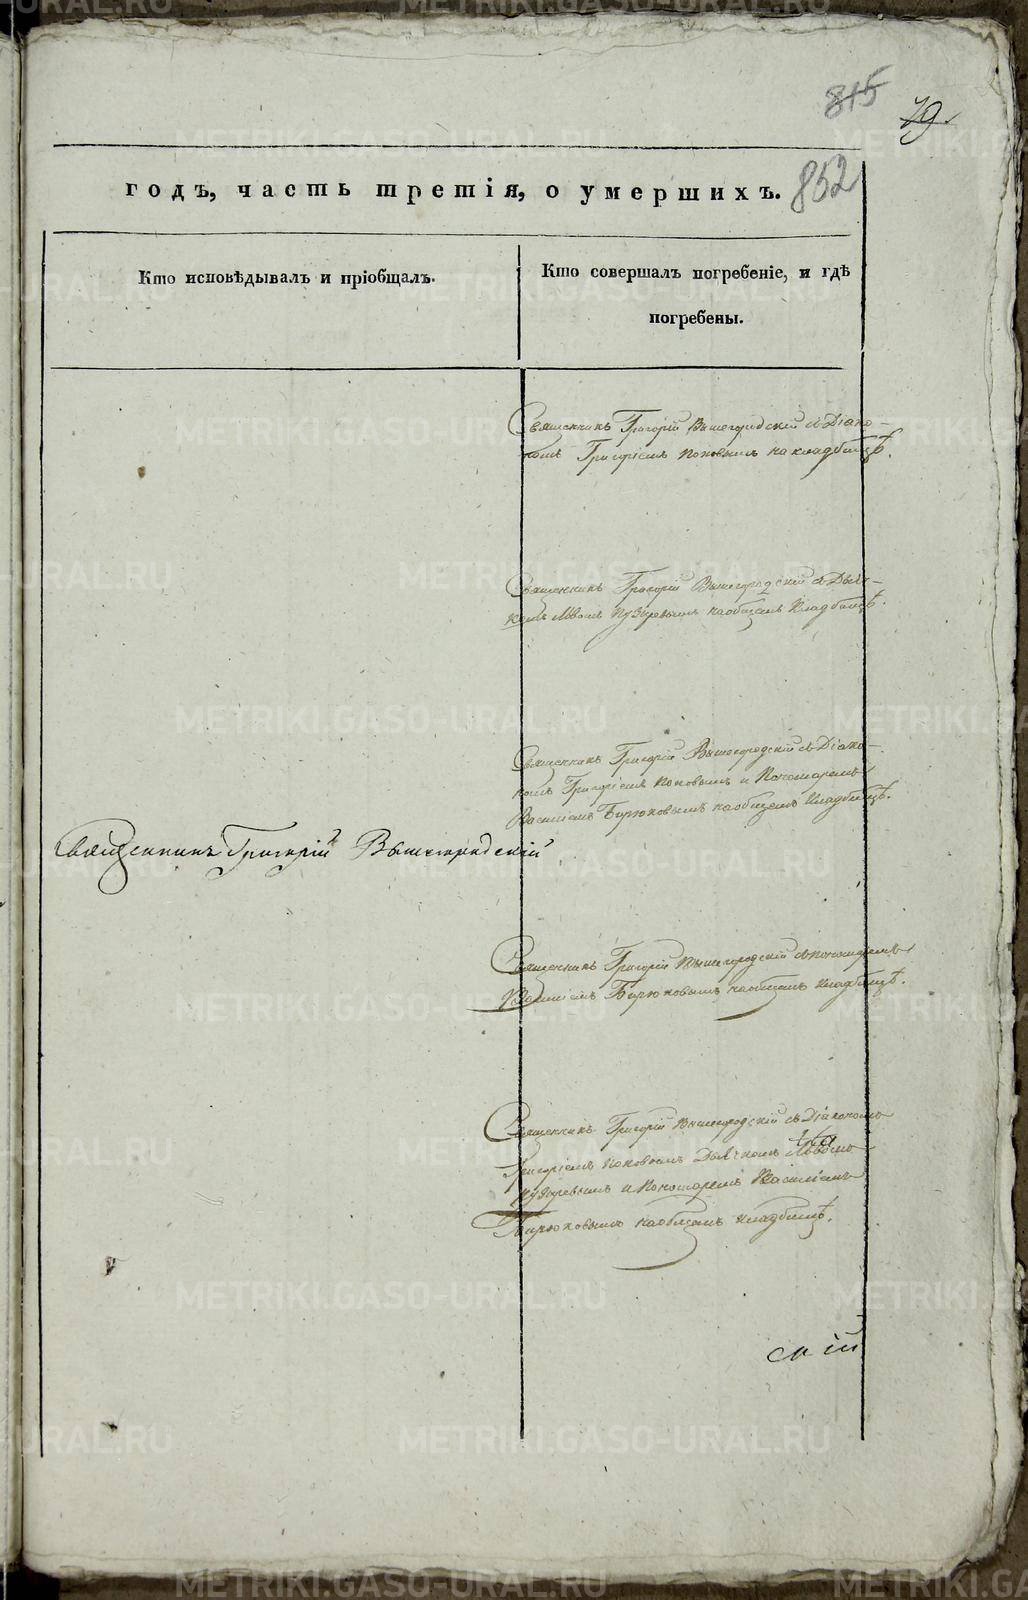 815
79.
852
годъ, часть третія, о умершихъ.
Кто исповѣдывалъ и пріобщалъ.
Кто совершалъ погребеніе, и гдѣ
погребены.
Священникъ Григорій Вышегородскій съ Діако-
номъ Григоріемъ Поповымъ на кладбищѣ.
Священникъ Григорій Вышегородскій съ Дьяч-
комъ Львомъ Пузыревымъ на общемъ кладбищѣ.
Священникъ Григорій Вышегородскій съ Діако-
номъ Григоріемъ Поповымъ и Пономаремъ
Василіемъ Бирюковымъ на общемъ кладбищѣ.
Священникъ Григорій Вышегородскій
Священникъ Григорій Вышегородскій съ пономаремъ
Василіемъ Бирюковымъ на общемъ кладбищѣ.
Священникъ Григорій Вышегородскій съ Діакономъ
Григоріемъ Поповымъ Дьячкомъ Львомъ
Пузыревымъ и Пономаремъ Василіемъ
Бирюковымъ на общемъ кладбищѣ.
скій
METRIKI.GASO-URAL.RU